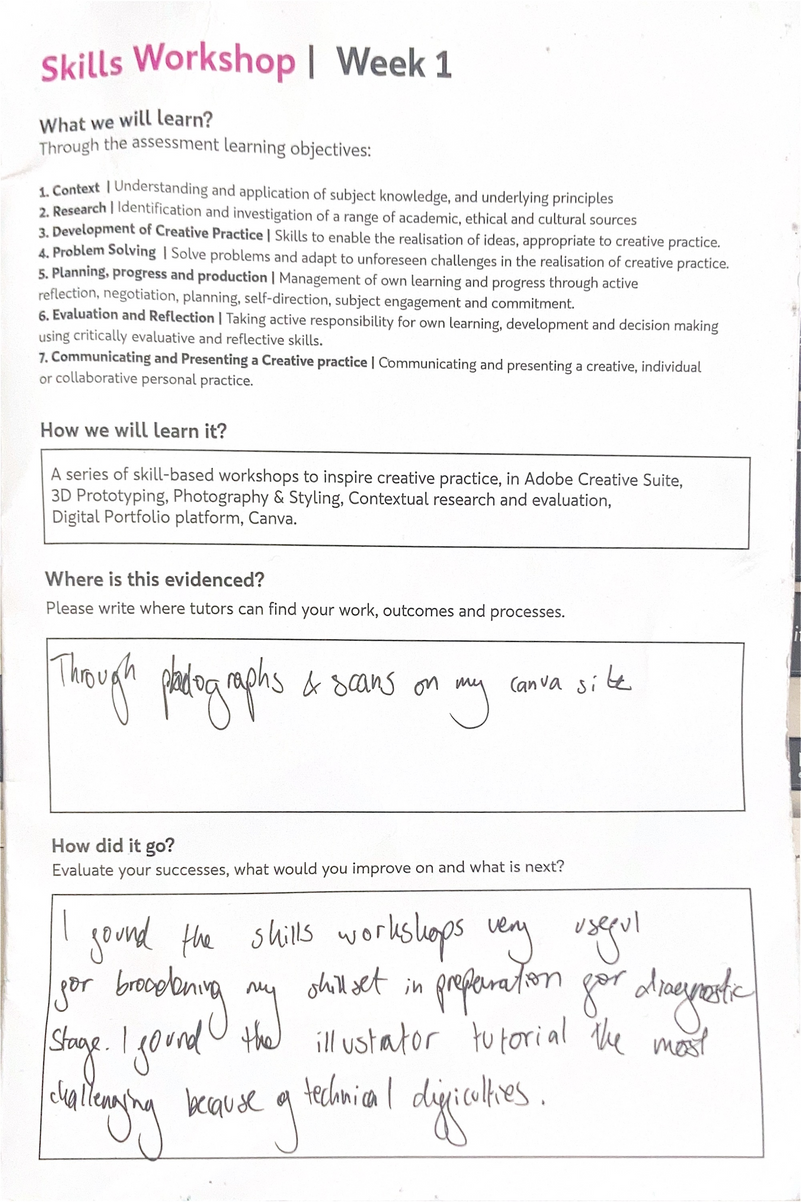 Skills Workshop | Week 1
What we will learn?
Through the assessment learning objectives:
1. Context | Understanding and application of subject knowledge, and underlying principles
2. Research | Identification and investigation of a range of academic, ethical and cultural sources
3. Development of Creative Practice | Skills to enable the realisation of ideas, appropriate to creative practice.
4. Problem Solving | Solve problems and adapt to unforeseen challenges in the realisation of creative practice.
5. Planning, progress and production | Management of own learning and progress through active
reflection, negotiation, planning, self-direction, subject engagement and commitment.
6. Evaluation and Reflection | Taking active responsibility for own learning, development and decision making
using critically evaluative and reflective skills.
7. Communicating and Presenting a Creative practice | Communicating and presenting a creative, individual
or collaborative personal practice.
How we will learn it?
A series of skill-based workshops to inspire creative practice, in Adobe Creative Suite,
3D Prototyping, Photography & Styling, Contextual research and evaluation,
Digital Portfolio platform, Canva.
Where is this evidenced?
Please write where tutors can find your work, outcomes and processes.
Through photographs & scans on my canva site
How did it go?
Evaluate your successes, what would you improve on and what is next?
I found the skills workshops very useful
for broadening my skillset in preparation for diagnostic
stage. I found the illustrator tutorial the most
challenging because of technical difficulties.